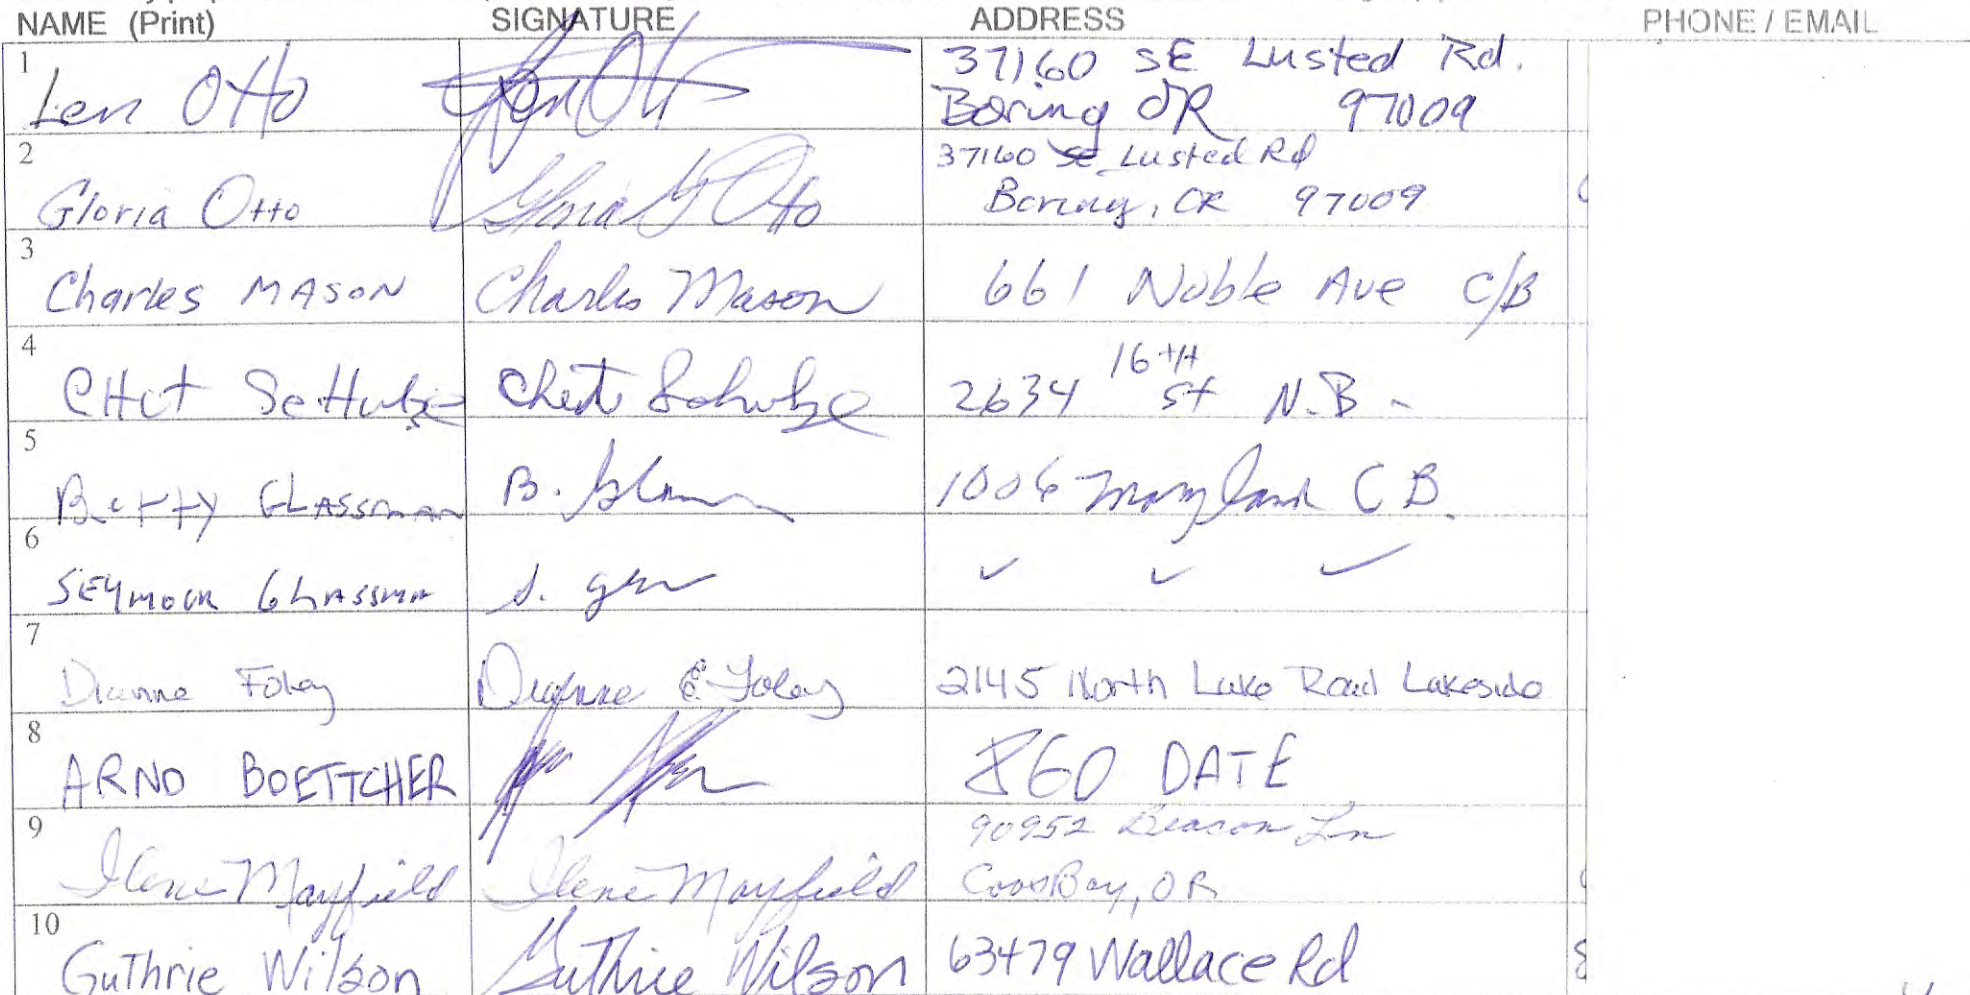 NAME (Print) SIGNATURE ADDRESS PHONE / EMAIL
1 Len Otto Len Ott 37160 SE Lusted Rd.
Boring OR 97009
2 Gloria Otto Gloria G Otto 37160 SE Lusted Rd
Boring, OR 97009
3 Charles MASON Charles Mason 661 Noble Ave C/B
4 CHet ScHulze Chet Schulze 2634 16TH St N.B.
5 Betty GLASSMAN B. 1006 Maryland C B.
6 SEYMOUR GLASSMAN S. ✓ ✓ ✓
7 Dianne Foley Dianne E. Foley 2145 North Lake Road Lakeside
8 ARNO BOETTCHER 860 DATE
9 Ilene Mayfield Ilene Mayfield 90952 Beacon Ln
Coos Bay, OR
10 Guthrie Wilson Guthrie Wilson 63479 Wallace Rd